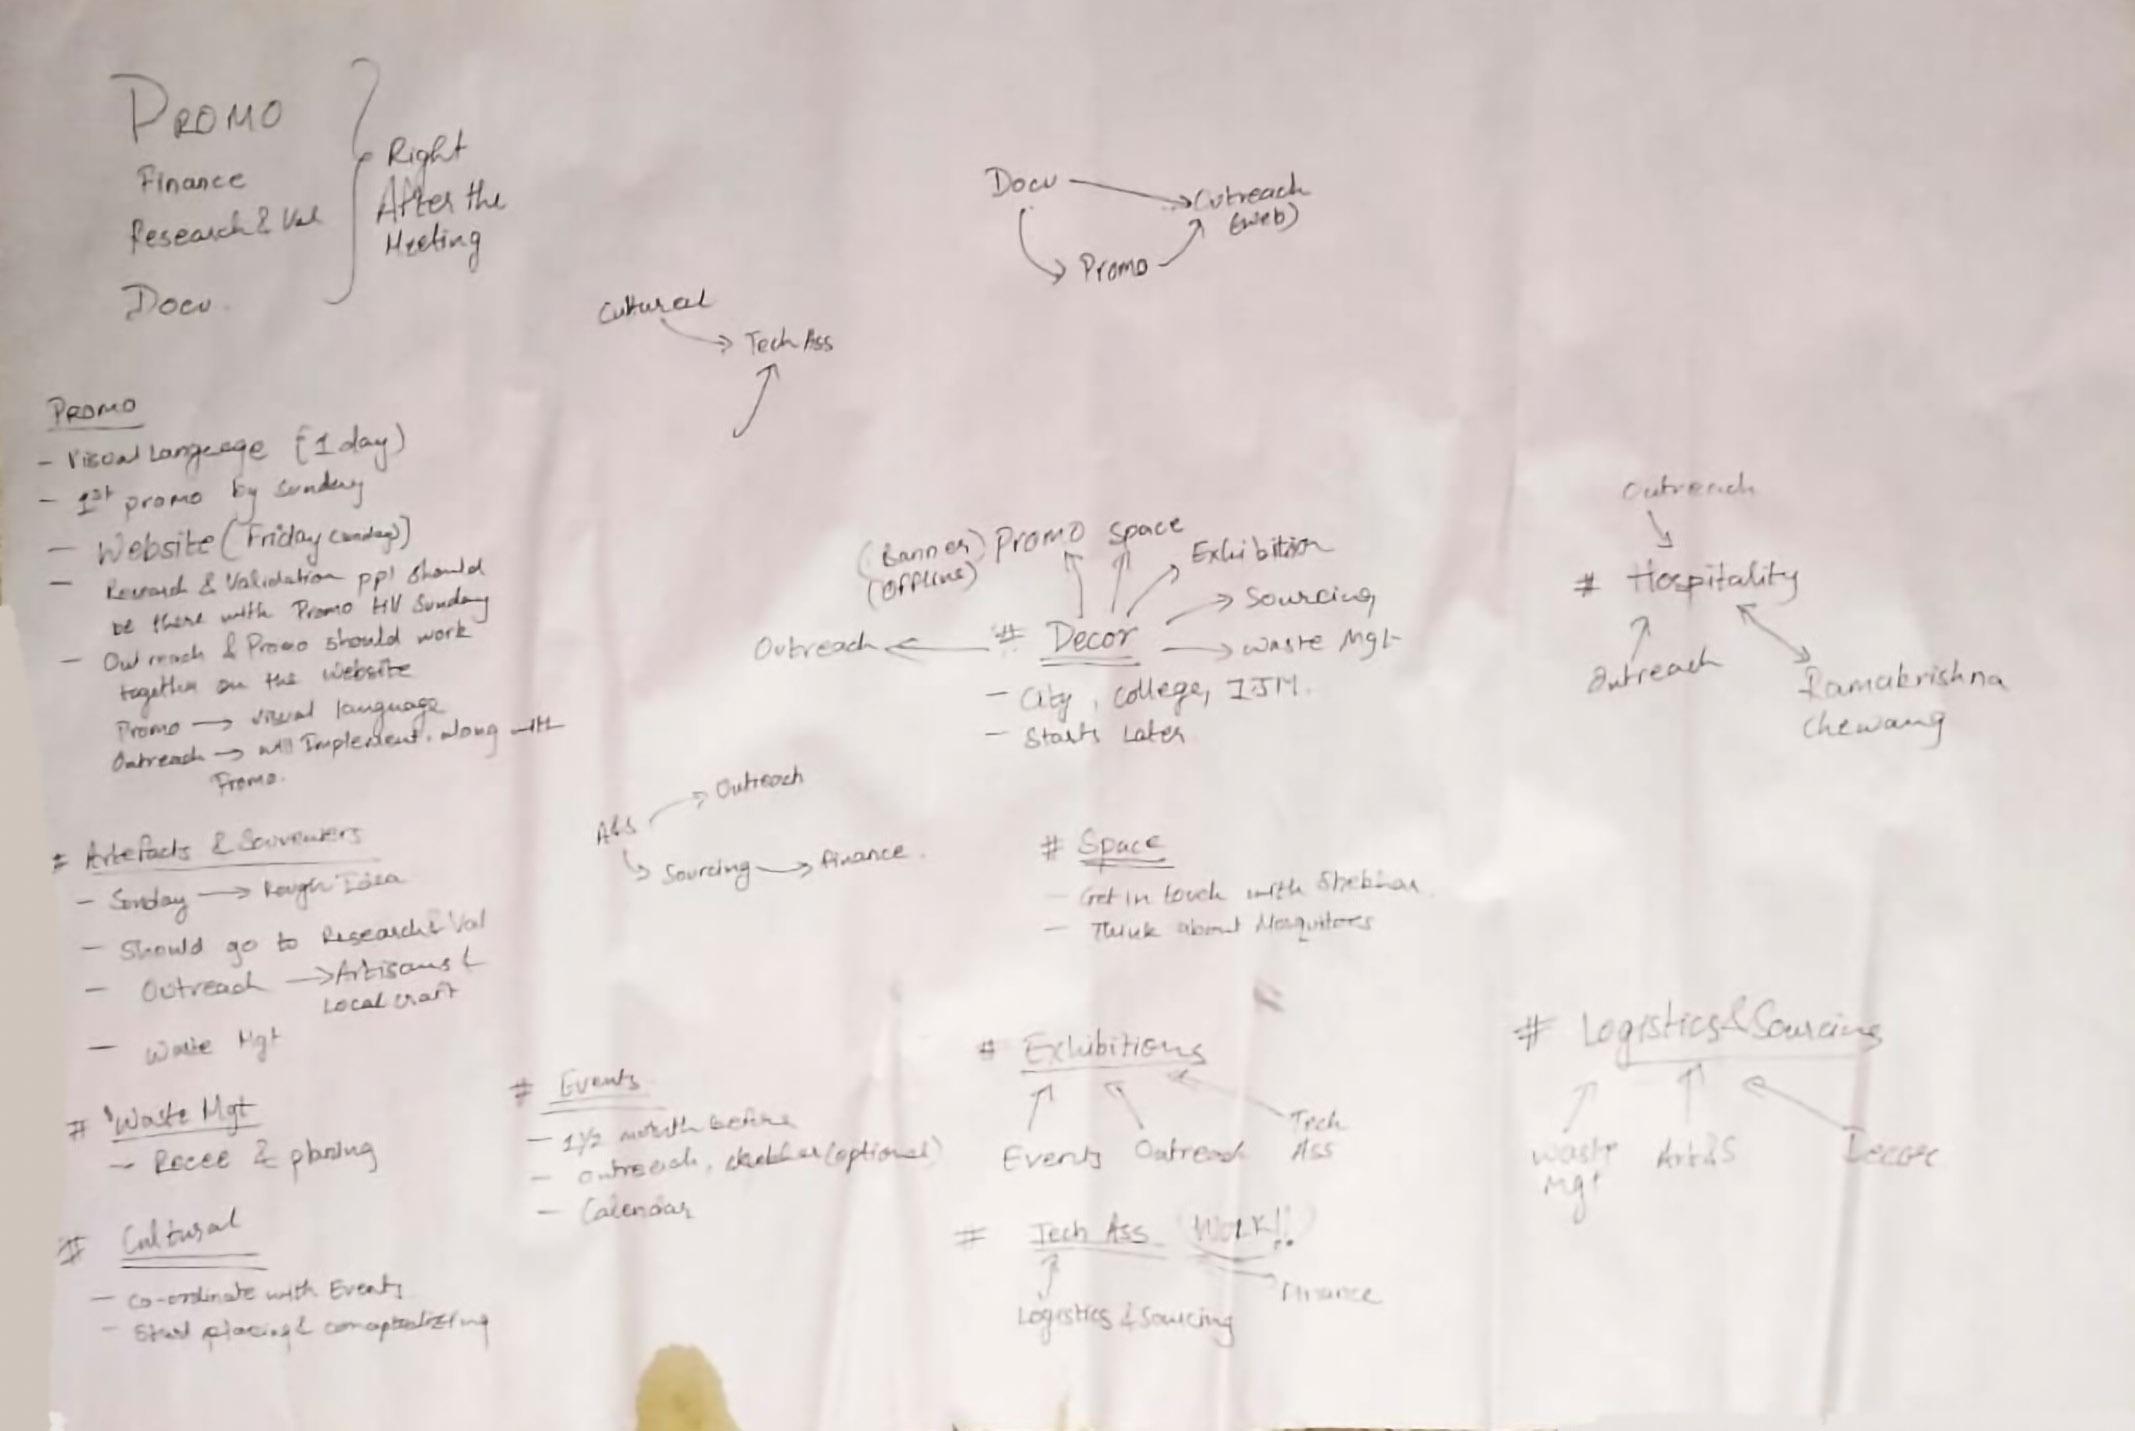 PROMO
Finance
Research & Val
Docu.
Right
After the
Meeting
Docu
Outreach
(Web)
Promo
Cultural
Tech Ass
PROMO
- Visual Language (1 day)
- 1st promo by Sunday
- Website (Friday (Sunday))
- Research & Validation ppl should
be there with Promo till Sunday
- Outreach & Promo should work
together on the website
Promo → visual language
Outreach → will Implement. along with
Promo.
(Banner) Promo Space
(Offline)
Exhibition
Sourcing
Outreach ← # Decor → Waste Mgt
- City, College, IJM.
- Starts Later
Outreach
# Hospitality
Outreach
Ramakrishna
Chewang
# Artefacts & Souveniers
- Sunday → Rough Idea
- Should go to Research & Val
- Outreach → Artisans &
Local craft
- Waste Mgt
A&S
Outreach
Sourcing → Finance.
# Space
- Get in touch with
- Think about Mosquitoes
# Waste Mgt
- Recee & planing
# Cultural
- Co-ordinate with Events
- Start &
# Events
- 1 1/2 month before
- Outreach, (optional)
- Calendar
# Exhibitions
Events
Outreach
Tech
Ass
# Tech Ass (WORK!!)
Logistics & Sourcing
Finance
# Logistics & Sourcing
Waste
Mgt
Art&S
Decor